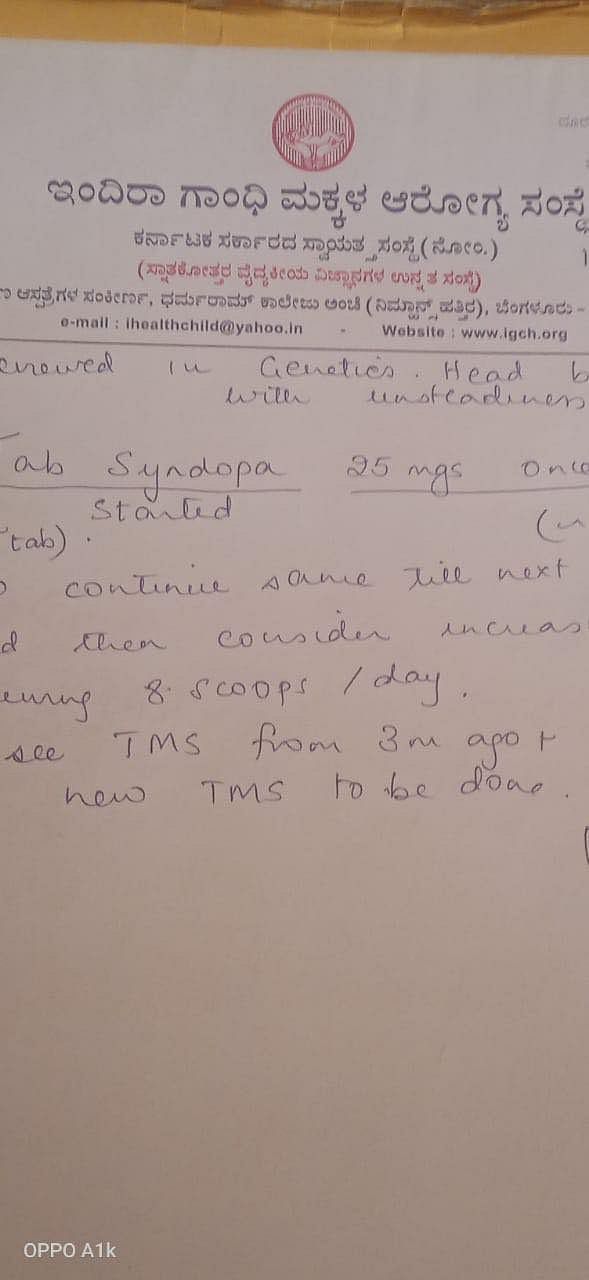 ಇಂದಿರಾ ಗಾಂಧಿ ಮಕ್ಕಳ ಆರೋಗ್ಯ ಸಂಸ್ಥೆ
ಕರ್ನಾಟಕ ಸರ್ಕಾರದ ಸ್ವಾಯತ್ತ ಸಂಸ್ಥೆ (ನೋಂ.)
(ಸ್ನಾತಕೋತ್ತರ ವೈದ್ಯಕೀಯ ವಿಜ್ಞಾನಗಳ ಉನ್ನತ ಸಂಸ್ಥೆ)
ಆಸ್ಪತ್ರೆಗಳ ಸಂಕೀರ್ಣ, ಧರ್ಮರಾಮ್ ಕಾಲೇಜು ಅಂಚೆ (ನಿಮ್ಹಾನ್ಸ್ ಹತ್ತಿರ), ಬೆಂಗಳೂರು -
e-mail : ihealthchild@yahoo.in - Website : www.igch.org
in Genetics. Head
with unsteadiness
Tab Syndopa 25 mgs once
started
tab).
continue same till next
then consider increas
8 scoops / day.
see TMS from 3m ago +
new TMS to be done.
OPPO A1k